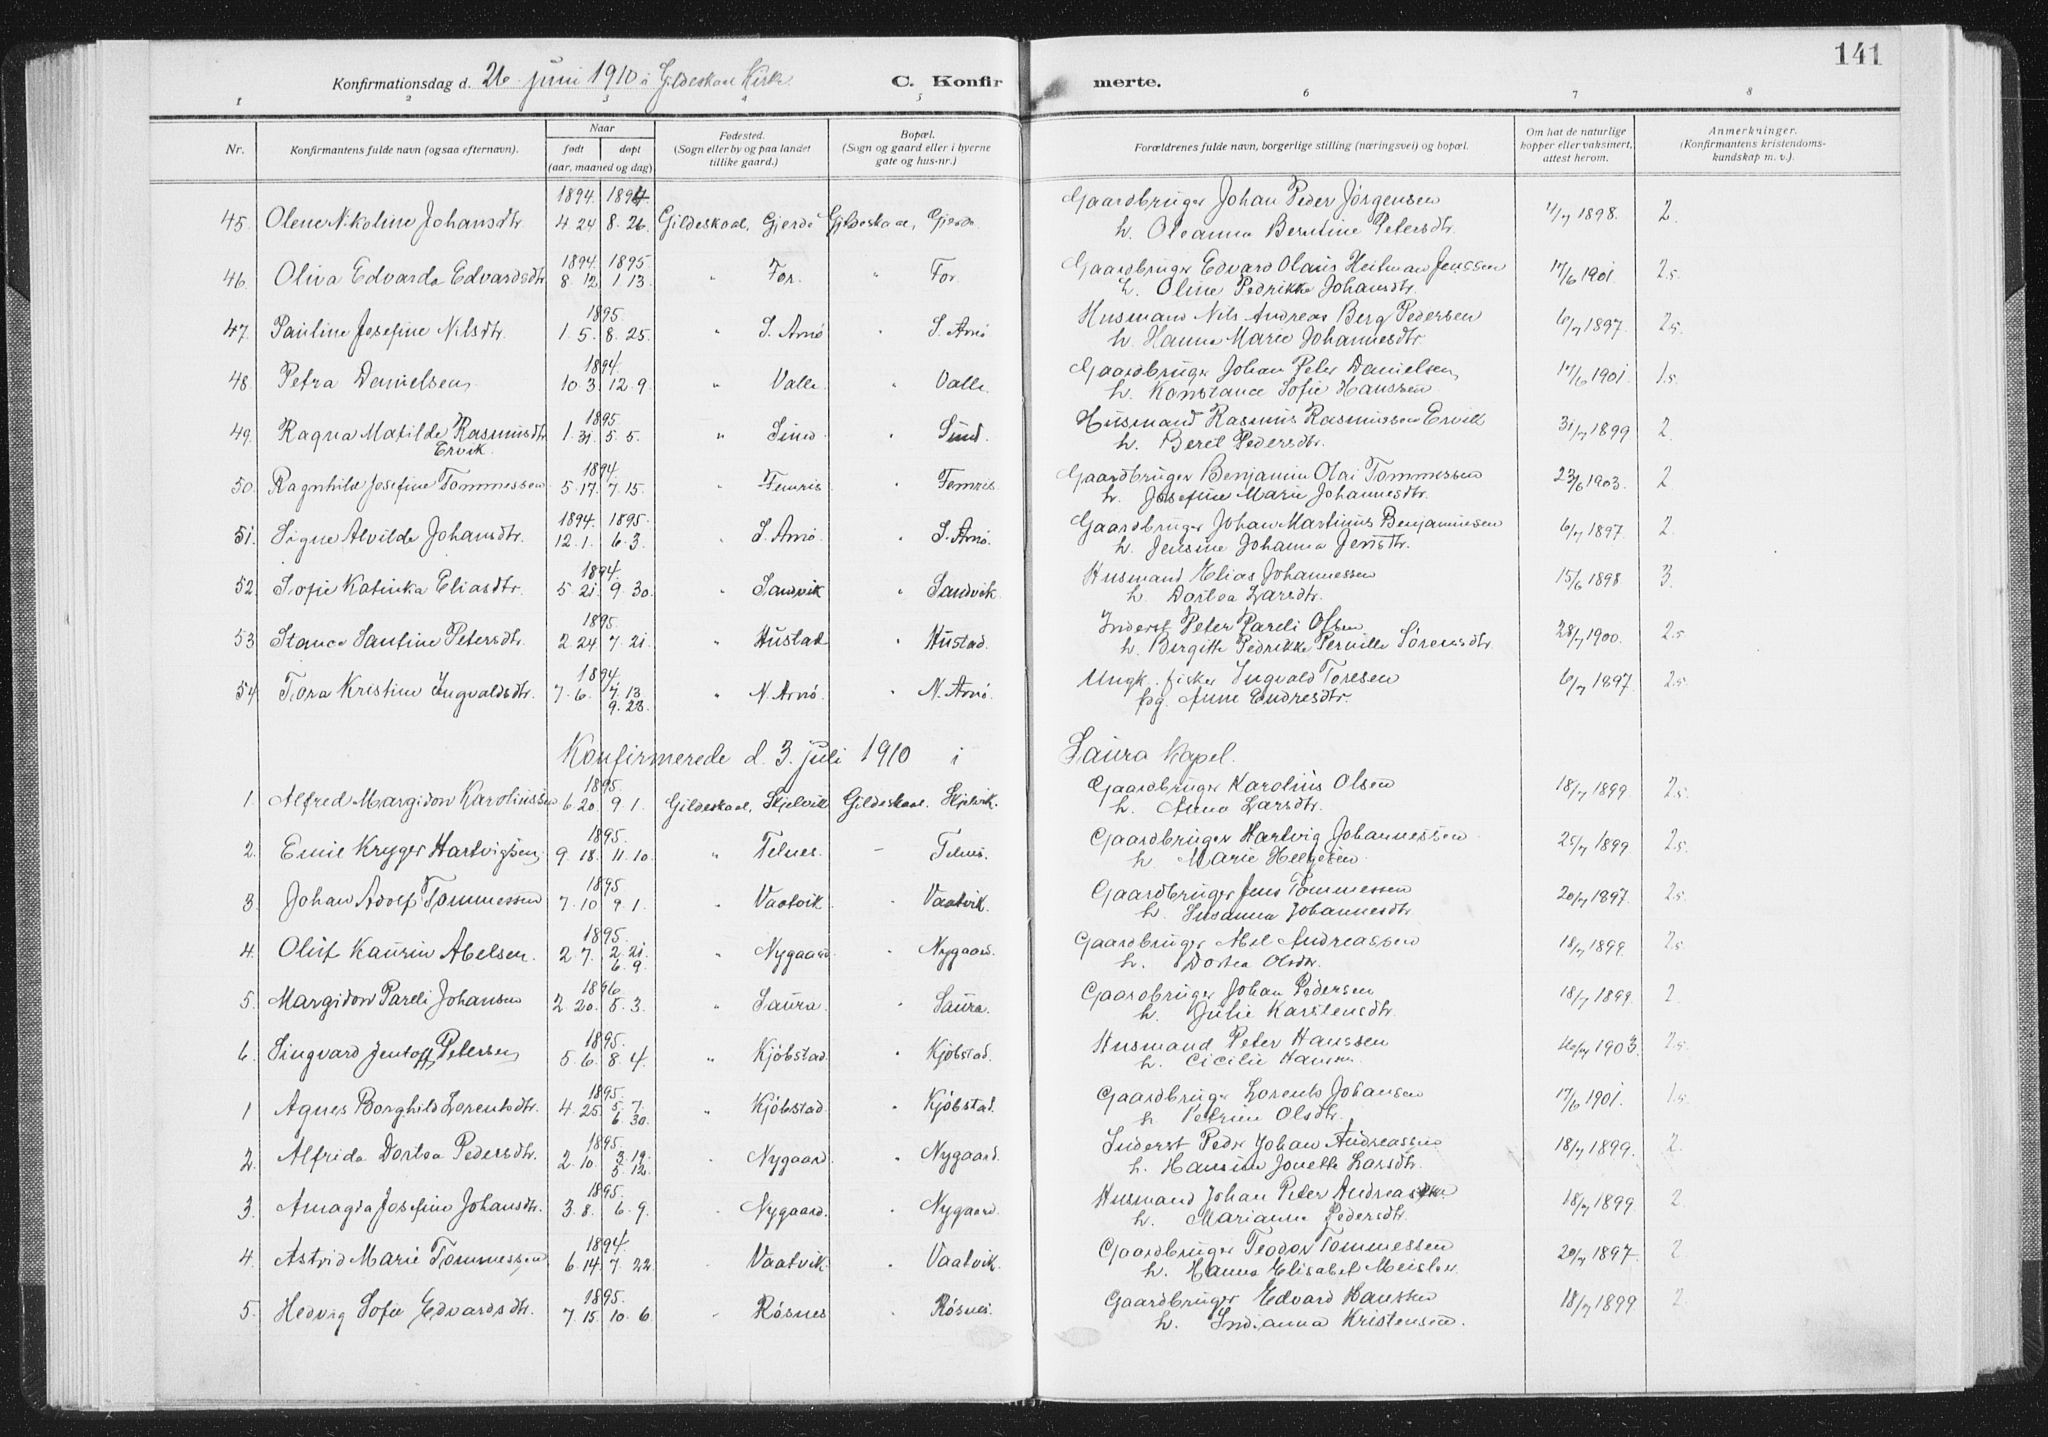 141
Konfirmationsdag d. 26. juni 1910 i Gildeskaal Kirke. C. Konfirmerte.
1 2 3 4 5 6 7 8
Nr. Konfirmantens fulde navn (ogsaa efternavn). Naar født døpt (aar, maaned og dag) Fødested. (Sogn eller by og paa landet tillike gaard.) Bopæl. (Sogn og gaard eller i byerne gate og hus-nr.) Forældrenes fulde navn, borgerlige stilling (næringsvei) og bopæl. Om hat de naturlige kopper eller vaksinert, attest herom. Anmerkninger. (Konfirmantens kristendomskundskap m. v.).
1894. 1894. Gaardbruger Johan Peder Jørgensen
45. Olene Nikoline Johansdtr. 4. 24 8. 26. Gildeskaal, Gjerde Gildeskaal, Gjerde. h. Oleanna Berntine Petersdtr. 1898. 2.
1894. 1895. Gaardbruger Edvard Olaus Heitman Jenssen
46. Oliva Edvarda Edvardsdtr. 8. 12 1. 13. " For. " For. h. Oline Pedrikke Johansdtr. 17/6 1901. 2.5
1895. Husmand Nils Andreas Berg Pedersen
47. Pauline Josefine Nilsdtr. 1. 5. 8. 25. " S. Arnø " S. Arnø h. Hanna Marie Johannesdtr. 6/7 1897. 2.5
1894. Gaardbruger Johan Peter Danielsen
48. Petra Danielsen 10. 3 12. 9. " Valle " Valle. h. Konstance Sofie Hanssen 17/6 1901. 1.5
1895. Husmand Rasmus Rasmussen Ervik
49. Ragna Matilde Rasmusdtr. 1. 31. 5. 5. " Sund. " Sund. h. Beret Pedersdtr. 31/7 1899 2.
Ervik.
1894. Gaardbruger Benjamin Olai Tommessen
50. Ragnhild Josefine Tommessen 5. 17. 7. 15. " Femris " Femris. h. Josefine Marie Johannesdtr. 23/6 1903. 2
1894. 1895. Gaardbruger Johan Martinus Benjaminsen
51. Signe Alvilde Johansdtr. 12. 1. 6. 3. " S. Arnø. " S. Arnø. h. Jensine Johanna Jensdtr. 6/7 1897. 2.
1894. Husmand Elias Johannessen
52. Sofie Katinka Eliasdtr. 5. 21. 9. 30. " Sandvik " Sandvik. h. Dortea Larsdtr. 15/6 1898 3.
1895. Inderst Peter Pareli Olsen
53. Stanca Santine Petersdtr. 2. 24 7. 21. " Hustad " Hustad. h. Birgitte Pedrikke Pernille Sørensdtr. 28/7 1900. 2.5
1894. Ungk. fisker Ingvald Toresen
54. Tora Kristine Ingvaldsdtr. 7. 6. 7. 13. " N. Arnø. " N. Arnø. pg. Anne Endresdtr. 6/7 1897. 2.5
9. 23.
Konfirmerede d. 3. juli 1910 i Saura Kapel.
1895. Gaardbruger Karolius Olsen
1. Alfred Margidon Karoliussen 6. 20. 9. 1. Gildeskaal, Skjelvik Gildeskaal. Skjelvik. h. Anna Larsdtr. 18/7 1899. 2.5
1895. Gaardbruger Hartvig Johannessen
2. Emil Kryger Hartvigsen 9. 18. 11. 10. " Telnes. — Telnes. h. Marie Helgesen 25/7 1899 2.5
1895. Gaardbruger Jens Tommessen
3. Johan Adolf Tommessen 7. 10 9. 1. " Vaatvik " Vaatvik. h. Susanna Johannesdtr. 20/7 1897. 2.5
1895. Gaardbruger Abel Andreassen
4. Oluf Kaurin Abelsen. 2. 7. 2. 21. " Nygaard " Nygaard. h. Dortea Olsdtr. 18/7 1899. 2.5
6. 9.
1896. Gaardbruger Johan Pedersen
5. Margidon Pareli Johansen 2. 20. 5. 3. " Saura " Saura. h. Julie Karstensdtr. 18/7 1899. 2.
1895. Husmand Peter Hanssen
6. Singvard Jentoft Petersen 5. 6. 8. 4. " Kjøbstad " Kjøbstad. h. Cicilie Hansen. 1903. 2.5
1895. Gaardbruger Lorents Johansen
1 Agnes Borghild Lorentsdtr. 4. 25. 5. 7. " Kjøbstad. " Kjøbstad. h Petrine Olsdtr. 17/6 1901. 1.5
6. 30.
1895. Inderst Peder Johan Andreassen
2. Alfrida Dortea Pedersdtr. 2. 10. 3. 19. " Nygaard. " Nygaard. h. Hansine Jonette Larsdtr. 18/7 1899. 2.
5. 12.
1895. Husmand Johan Peter Andreassen.
3. Amagda Josefine Johansdtr. 3. 8. 6. 9. " Nygaard. " Nygaard. h. Marianne Pedersdtr. 18/7 1899. 2
1894. Gaardbruger Teodor Tommessen
4. Astrid Marie Tommessen 6. 14 7. 22. " Vaatvik. " Vaatvik. h. Hanna Elisabet Meisler. 20/7 1897. 2
1895. Gaardbruger Edvard Hanssen
5. Hedvig Sofie Edvardsdtr. 7. 15. 10. 6 " Røsnes " Røsnes. h. Indianna Kristensen. 18/7 1899 2